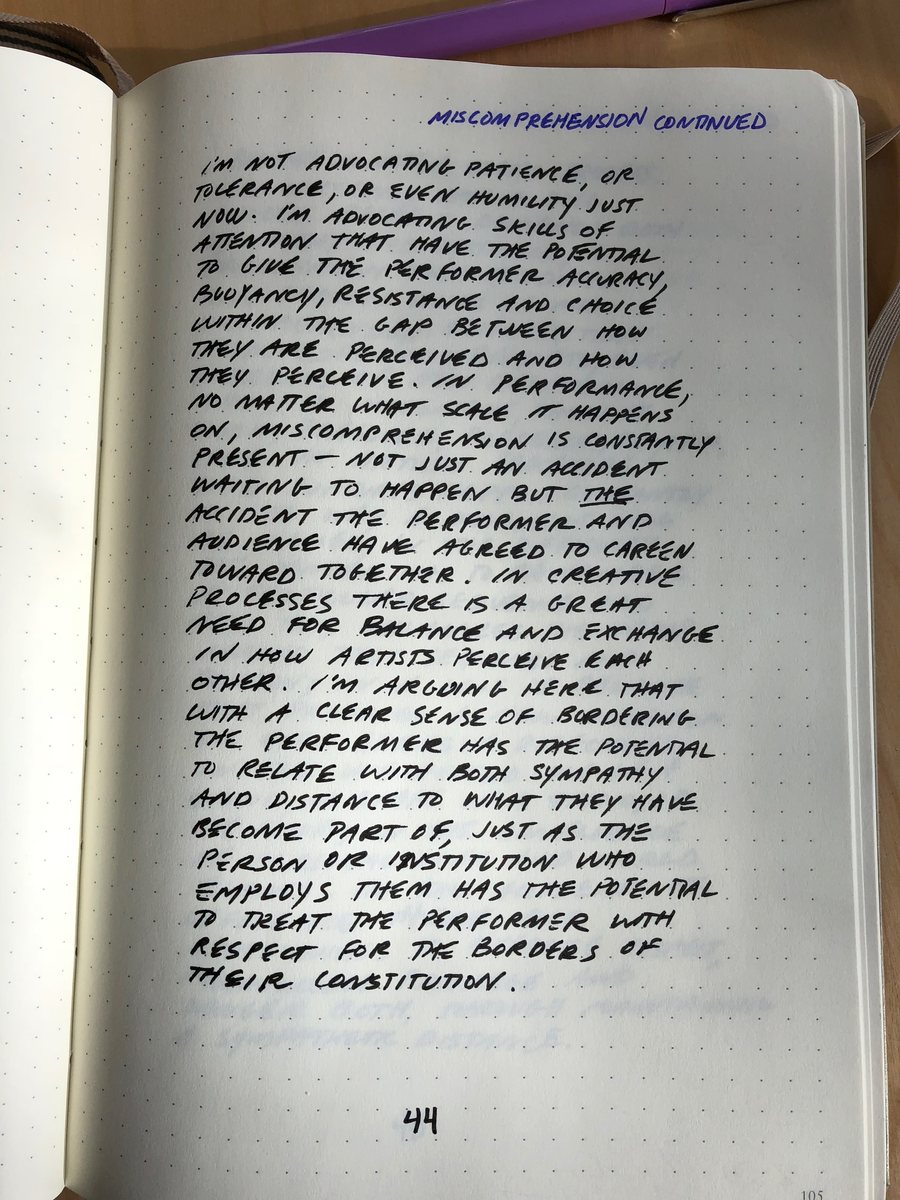 MISCOMPREHENSION CONTINUED
I'M NOT ADVOCATING PATIENCE, OR
TOLERANCE, OR EVEN HUMILITY JUST
NOW. I'M ADVOCATING SKILLS OF
ATTENTION THAT HAVE THE POTENTIAL
TO GIVE THE PERFORMER ACCURACY,
BUOYANCY, RESISTANCE AND CHOICE
WITHIN THE GAP BETWEEN HOW
THEY ARE PERCEIVED AND HOW
THEY PERCEIVE. IN PERFORMANCE,
NO MATTER WHAT SCALE IT HAPPENS
ON, MISCOMPREHENSION IS CONSTANTLY
PRESENT — NOT JUST AN ACCIDENT
WAITING TO HAPPEN BUT THE
ACCIDENT THE PERFORMER AND
AUDIENCE HAVE AGREED TO CAREEN
TOWARD TOGETHER. IN CREATIVE
PROCESSES THERE IS A GREAT
NEED FOR BALANCE AND EXCHANGE
IN HOW ARTISTS PERCEIVE EACH
OTHER. I'M ARGUING HERE THAT
WITH A CLEAR SENSE OF BORDERING
THE PERFORMER HAS THE POTENTIAL
TO RELATE WITH BOTH SYMPATHY
AND DISTANCE TO WHAT THEY HAVE
BECOME PART OF, JUST AS THE
PERSON OR INSTITUTION WHO
EMPLOYS THEM HAS THE POTENTIAL
TO TREAT THE PERFORMER WITH
RESPECT FOR THE BORDERS OF
THEIR CONSTITUTION.
44
105